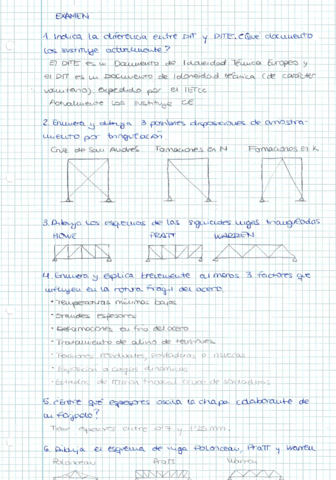 EXAMEN
1. Indica la diferencia entre DIT y DITE. ¿Que documento
los sustituye actualmente?
El DITE es un Documento de Idoneidad Técnica Europeo y
el DIT es un Documento de Idoneidad Técnica (de carácter
voluntario). Expedido por el IETCC
Actualmente los sustituye CE
2. Enumera y dibuja 3 posibles disposiciones de arriostra-
miento por triangulación
Cruz de San Andrés Formaciones en N Formaciones en K
3. Dibuja los esquemas de las siguientes vigas trianguladas
HOWE PRATT WARREN
4. Enumera y explica brevemente al menos 3 factores que
influyen en la rotura frágil del acero
• Temperaturas mínimas bajas
• Grandes espesores
• Deformaciones en frío del acero
• Tratamiento de alivio de tensiones
• Tensiones residuales, soldaduras o muescas
• Exposición a cargas dinámicas
• Estados de tensión triaxial cruce de soldaduras
5. ¿Entre qué espesores oscila la chapa colaborante de
un forjado?
espesores entre 0'7 y 1'25 mm.
6. Dibuja el esquema de viga Polonceau, Pratt y Warren
Polonceau Pratt Warren